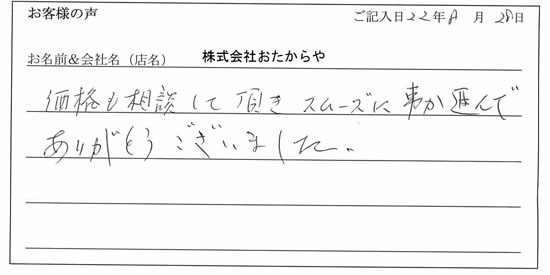 お客様の声
ご記入日22年8月28日
お名前&会社名（店名） 株式会社おたからや
価格も相談して頂きスムーズに事が運んで
ありがとうございました。